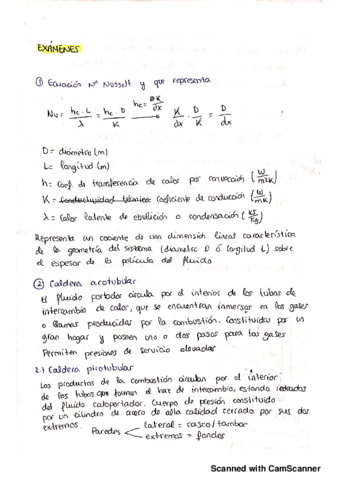 EXÁMENES
① Ecuación Nº Nusselt y que representa
Nu = hc · L / λ = hc · D / K hc = DK / dx K / dx · D / K = D / dx
D = diámetro (m)
L = longitud (m)
h = Coef. de transferencia de calor por convección (W / m²K)
K = Conductividad térmica: coeficiente de conducción (W / mK)
λ = Calor latente de ebullición o condensación (KJ / Kg)
Representa un cociente de una dimensión lineal característica
de la geometría del sistema (diametro D ó longitud L) sobre
el espesor de la película del fluido
② Caldera acotubular
El fluido portador circula por el interior de los tubos de
intercambio de calor, que se encuentran inmersos en los gases
o llamas producidas por la combustión. Constituidas por un
gran hogar y poseen uno o dos pasos para los gases
Permiten presiones de servicio elevadas
2.1 Caldera pirotubular
Los productos de la combustión circulan por el interior
de los tubos que forman el haz de intercambio, estando rodeados
del fluido caloportador. Cuerpo de presión constituido
por un cilindro de acero de alta calidad cerrado por sus dos
extremos. Paredes lateral = casco/tambor
extremos = fondos
Scanned with CamScanner